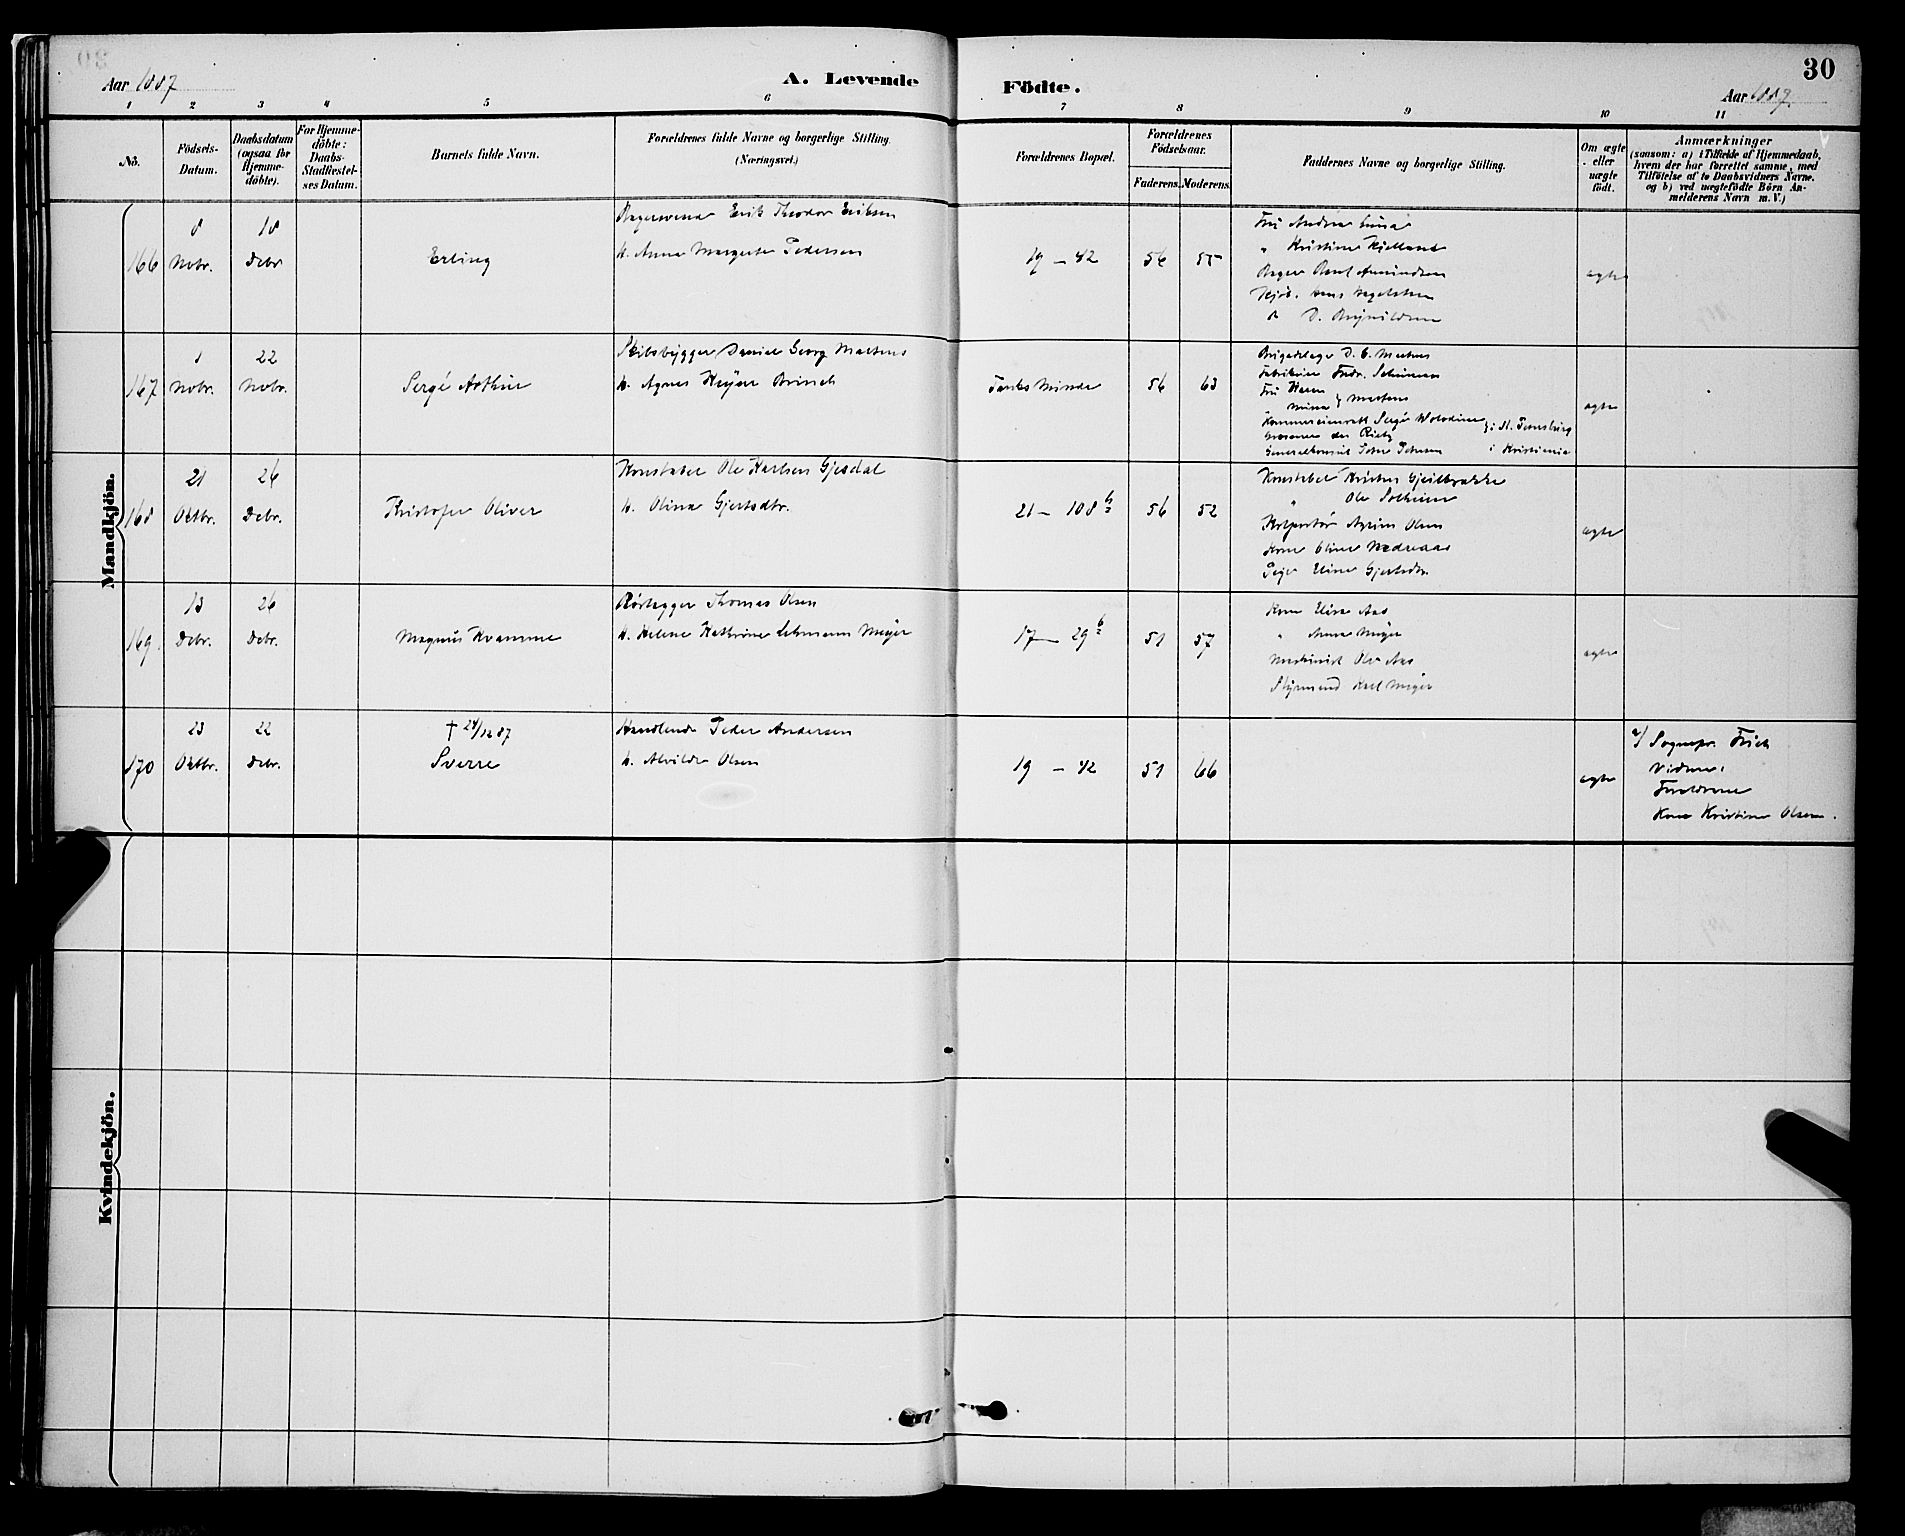 30
Aar 1887
A. Levende
Födte.
Aar 1887.
1 2 3 4 5 6 7 8 9 10 11
No.
Födsels-
Datum.
Daabsdatum
(ogsaa for
Hjemme-
döbte).
For Hjemme-
döbte:
Daabs-
Stadfæstel-
ses Datum.
Barnets fulde Navn.
Forældrenes fulde Navne og borgerlige Stilling.
(Næringsvei.)
Forældrenes Bopæl.
Forældrenes
Födselsaar.
Faderens.
Moderens.
Faddernes Navne og borgerlige Stilling.
Om ægte
eller
uægte
født.
Anmærkninger
(saasom: a) i Tilfælde af Hjemmedaab,
hvem der har forrettet samme, med
Tilföielse af to Daabsvidners Navne.
og b) ved uægtefödte Börn An-
melderens Navn m. V.)
Mandkjön.
166
8
Novbr.
18
Debr
Erling
Bagersvend Erik Theodor Eriksen
h. Anna Margrete Pedersen
19 – 42
56
55
Fru Andrea
" Kristine Kielland
Bager Amundsen
Kjøb. Hans
D.
ægte
167
1
Novbr.
22
Novbr.
Sergé Arthur
Skibsbygger Daniel Georg Martens
h. Agnes Heyer Brinch
Tanks Minde
56
63
D. C. Martens
Fabrikeier Fredr.
Fru Karen
Mina } Martens
Kommercienrath Sergé
i St. Petersburg
Generalkonsul Peter Petersen i Kristiania
ægte
168
21
Oktbr.
26
Debr.
Kristofer Oliver
Konstabel Ole Karlsen Gjesdal
h. Olina Gjertsdtr.
21 – 108 b/2
56
52
Konstabel Kristen Gjeilbrekke
" Ole Solheim
Kolportør Olsen
Kone Oline Nedreaas
Pige Eline Gjertsdtr.
ægte
169
13
Debr.
26
Debr.
Magnus Kvamme
Rørlægger Thomas Olsen
h. Helene Kathrine Lehmann Meyer
17 – 29 b/2
51
57
Kone Elisa Aas
" Anna Meyer
Maskinist Ole Aas
Styrmand Karl Meyer
ægte
170
23
Oktbr.
22
Debr.
† 24/12 87
Sverre
Handlende Peder Andersen
h. Alvilde Olsen
19 – 42
51
66
ægte
a/ Sognepr. Frich
Vidner:
Forældrene
Kone Kristine Olsen.
Kvindekjön.